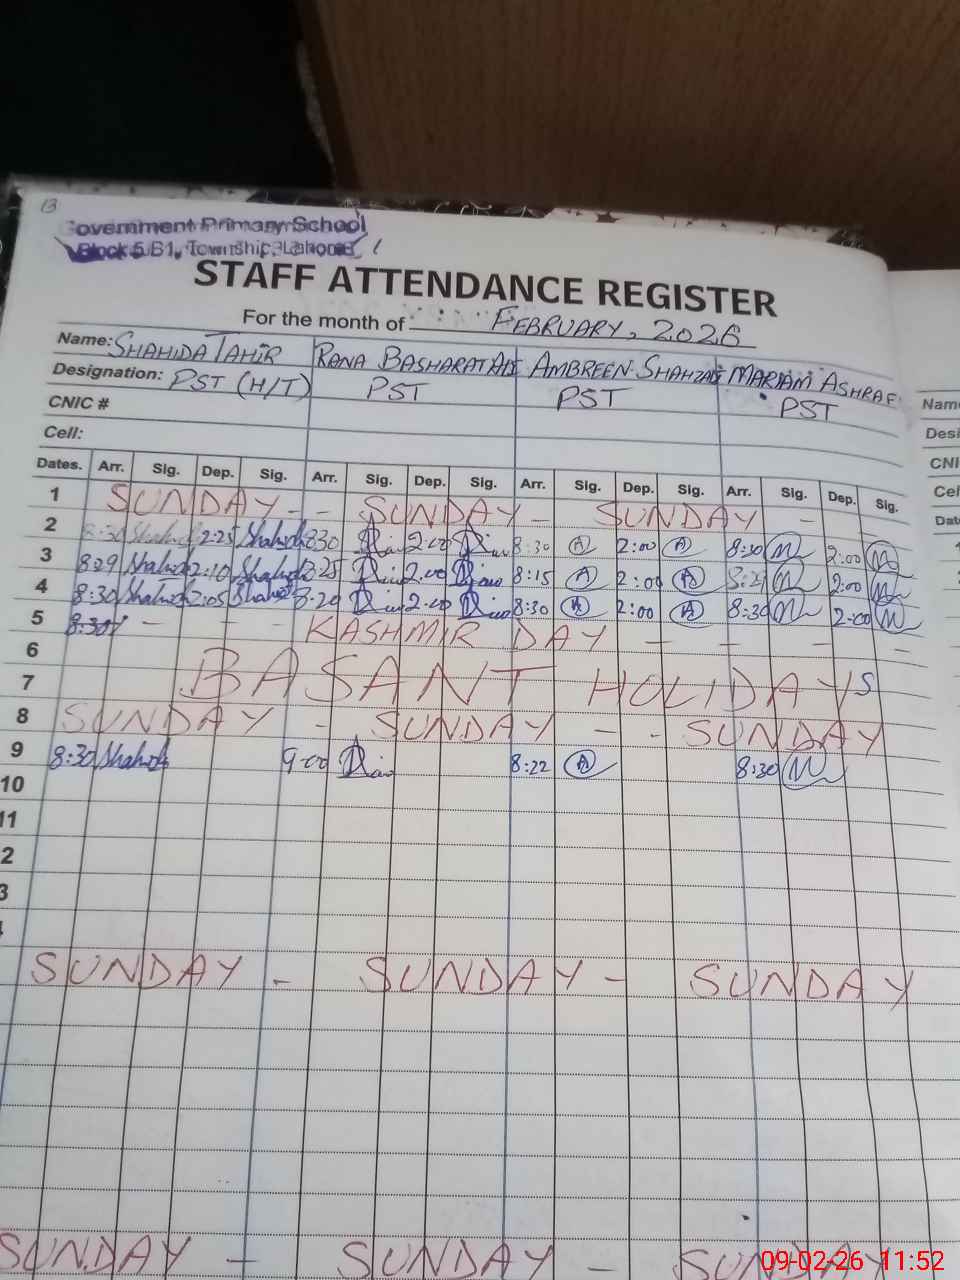 13
Government Primary School
Block 5 B1, Township, Lahore
STAFF ATTENDANCE REGISTER
For the month of FEBRUARY, 2026
Name: SHAHIDA TAHIR RANA BASHARAT ALI AMBREEN SHAHZAD MARIAM ASHRAF Name
Designation: PST (H/T) PST PST PST Desi
CNIC # CNI
Cell: Cel
Dates. Arr. Sig. Dep. Sig. Arr. Sig. Dep. Sig. Arr. Sig. Dep. Sig. Arr. Sig. Dep. Sig. Dat
1 SUNDAY - - SUNDAY - SUNDAY -
2 8:30 Shahida 2:25 Shahida 8:30 2:00 8:30 A 2:00 A 8:30 M 2:00 M
3 8:29 Shahida 2:10 Shahida 8:25 2:00 8:15 A 2:00 A 8:25 M 2:00 M
4 8:30 Shahida 2:05 Shahida 8:20 2:00 8:30 A 2:00 A 8:30 M 2:00 M
5 8:30 - - - KASHMIR DAY - - - -
6
7 BASANT HOLIDAYS
8 SUNDAY - SUNDAY - - SUNDAY
9 8:30 Shahida 9:00 8:22 A 8:30 M
10
11
2
3
SUNDAY - SUNDAY - SUNDAY
SUNDAY - SUNDAY - SUNDAY
09-02-26 11:52